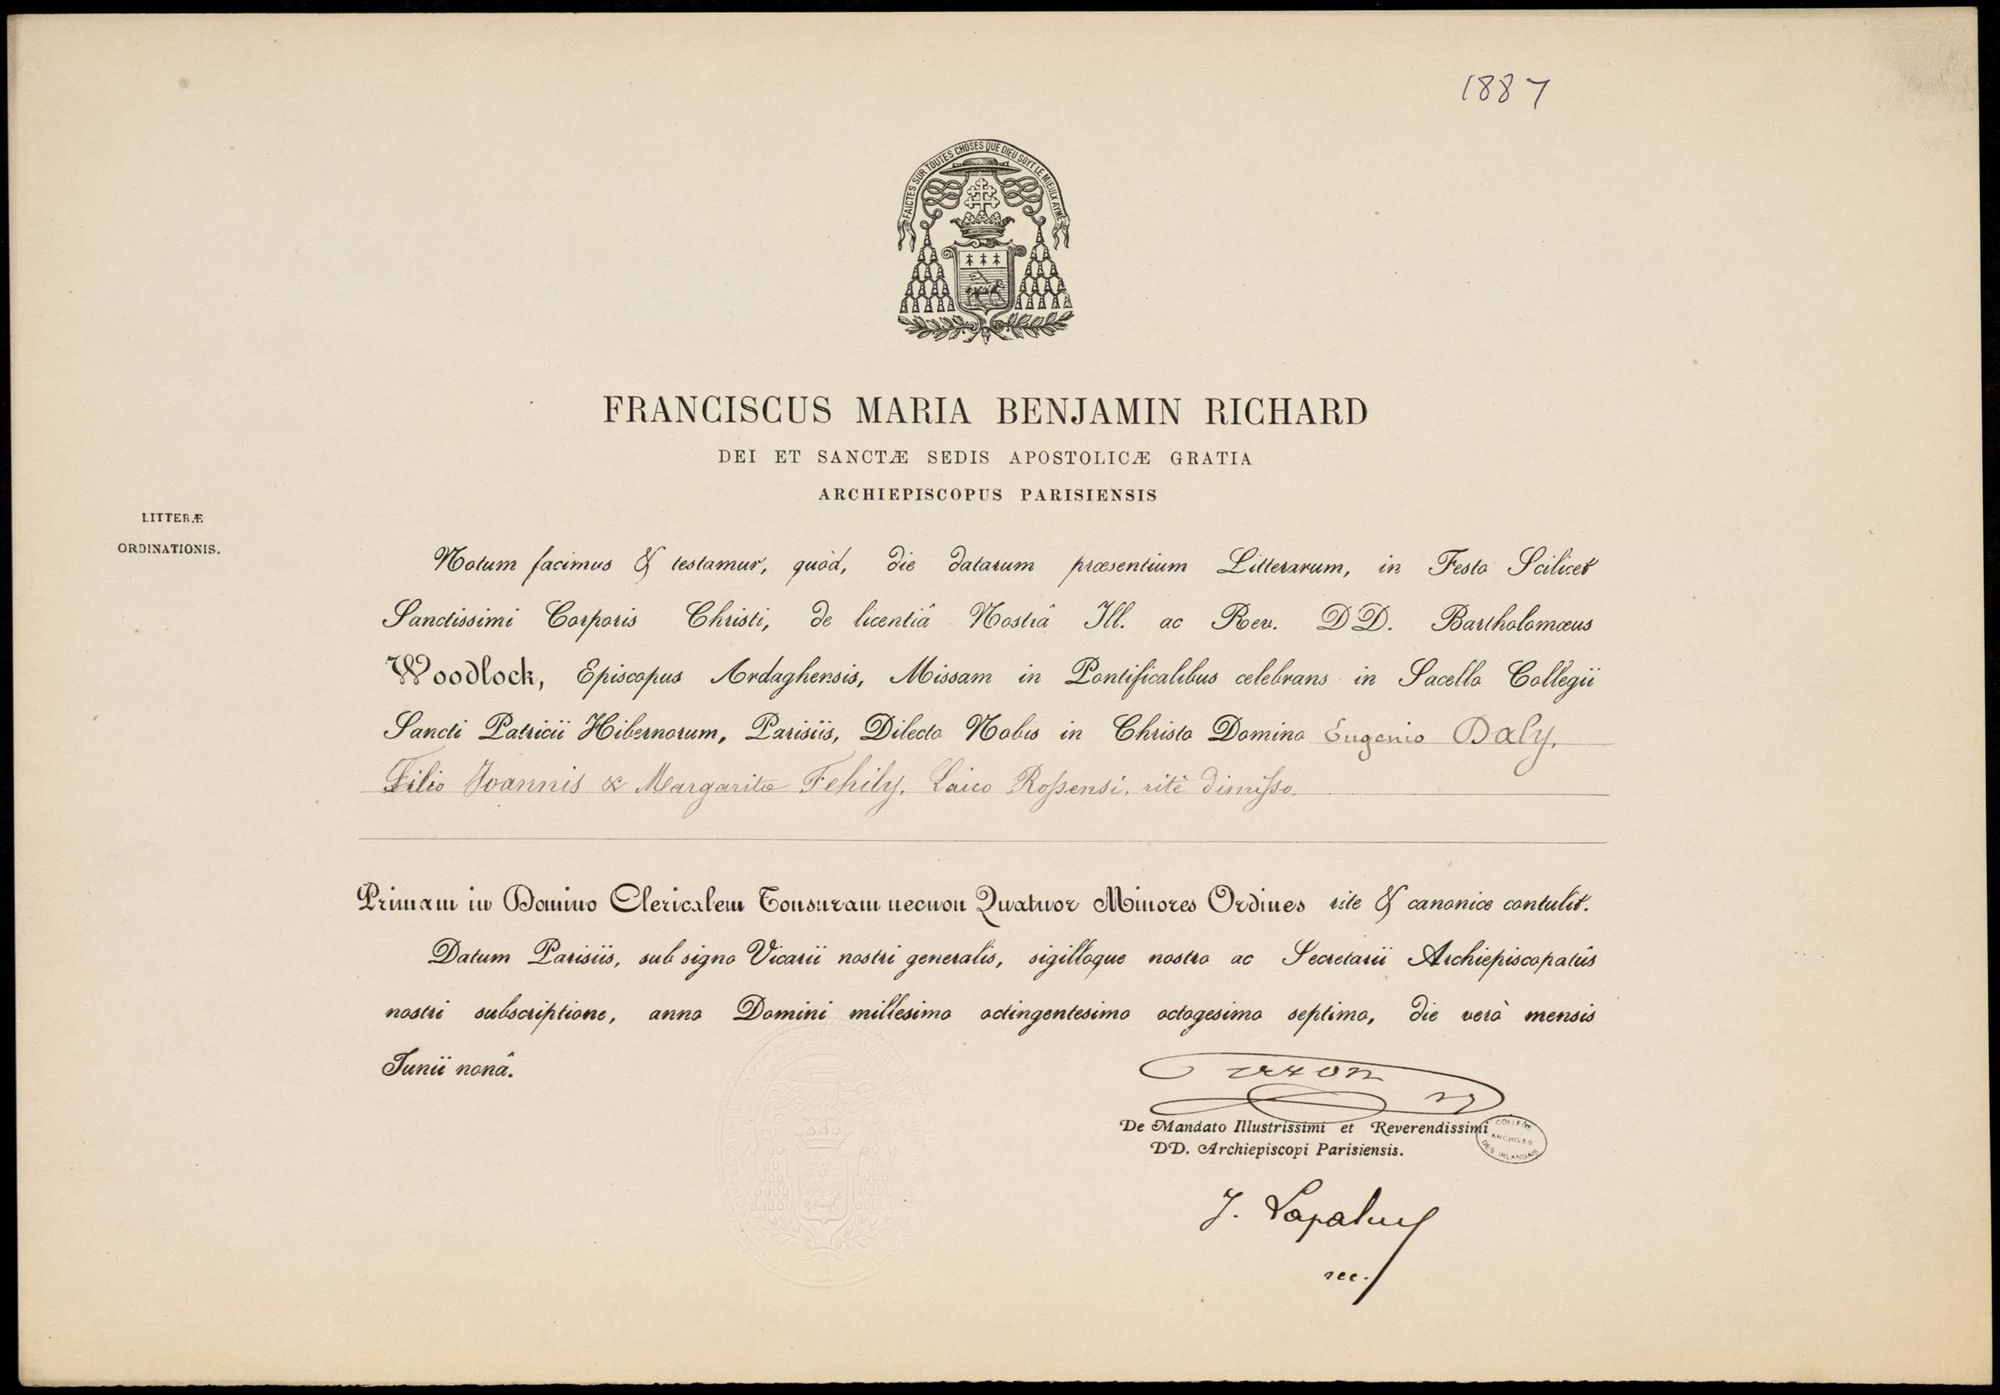 1887
FAICTES SUR TOUTES CHOSES QUE DIEU SOYT LE MIEULX AYMÉ
FRANCISCUS MARIA BENJAMIN RICHARD
DEI ET SANCTÆ SEDIS APOSTOLICÆ GRATIA
ARCHIEPISCOPUS PARISIENSIS
LITTERÆ
ORDINATIONIS.
Notum facimus & testamur, quòd, die datarum præsentium Litterarum, in Festo Scilicet
Sanctissimi Corporis Christi, de licentiâ Nostrâ Ill. ac Rev. DD. Bartholomæus
Woodlock, Episcopus Ardaghensis, Missam in Pontificalibus celebrans in Sacello Collegii
Sancti Patricii Hibernorum, Parisiis, Dilecto Nobis in Christo Domino Eugenio Daly,
Filio Joannis & Margaritæ Fehily, Laico Rossensi, ritè dimisso.
Primam in Domino Clericalem Tonsuram necnon Quatuor Minores Ordines rite & canonice contulit.
Datum Parisiis, sub signo Vicarii nostri generalis, sigilloque nostro ac Secretarii Archiepiscopatûs
nostri subscriptione, anno Domini millesimo octingentesimo octogesimo septimo, die verò mensis
Junii nonâ.
De Mandato Illustrissimi et Reverendissimi
DD. Archiepiscopi Parisiensis.
COLLÈGE
ARCHIVES
DES IRLANDAIS
J.